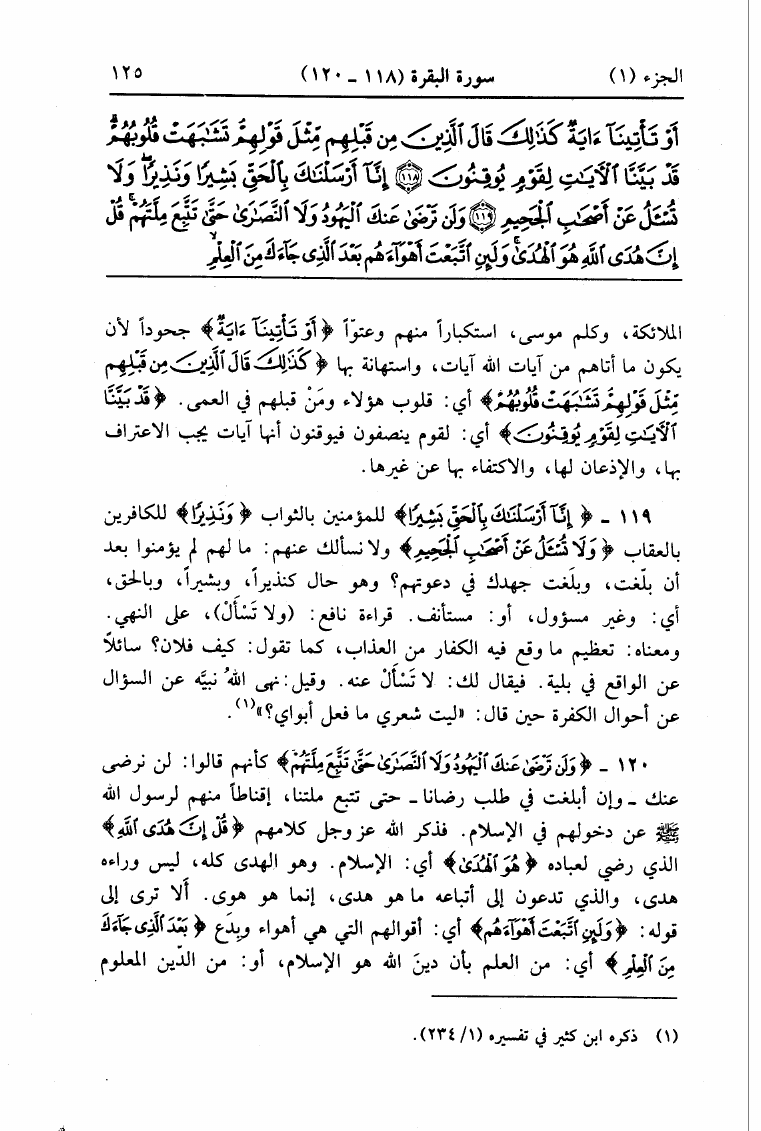 الجزء (١) سورة البقرة (١١٨ ـ ١٢٠) ١٢٥
أَوْ تَأْتِينَآ ءَايَةٌ كَذَٰلِكَ قَالَ ٱلَّذِينَ مِن قَبْلِهِم مِّثْلَ قَوْلِهِمْ تَشَٰبَهَتْ قُلُوبُهُمْ
قَدْ بَيَّنَّا ٱلْآيَٰتِ لِقَوْمٍ يُوقِنُونَ ﴿١١٨﴾ إِنَّآ أَرْسَلْنَٰكَ بِٱلْحَقِّ بَشِيرًا وَنَذِيرًا وَلَا
تُسْـَٔلُ عَنْ أَصْحَٰبِ ٱلْجَحِيمِ ﴿١١٩﴾ وَلَن تَرْضَىٰ عَنكَ ٱلْيَهُودُ وَلَا ٱلنَّصَٰرَىٰ حَتَّىٰ تَتَّبِعَ مِلَّتَهُمْ قُلْ
إِنَّ هُدَى ٱللَّهِ هُوَ ٱلْهُدَىٰ وَلَئِنِ ٱتَّبَعْتَ أَهْوَآءَهُم بَعْدَ ٱلَّذِى جَآءَكَ مِنَ ٱلْعِلْمِ
الملائكة، وكلم موسى، استكباراً منهم وعتوّاً ﴿أَوْ تَأْتِينَآ ءَايَةٌ﴾ جحوداً لأن
يكون ما أتاهم من آيات الله آيات، واستهانة بها ﴿كَذَٰلِكَ قَالَ ٱلَّذِينَ مِن قَبْلِهِم
مِّثْلَ قَوْلِهِمْ تَشَٰبَهَتْ قُلُوبُهُمْ﴾ أي: قلوب هؤلاء ومَنْ قبلهم في العمى. ﴿قَدْ بَيَّنَّا
ٱلْآيَٰتِ لِقَوْمٍ يُوقِنُونَ﴾ أي: لقوم ينصفون فيوقنون أنها آيات يجب الاعتراف
بها، والإذعان لها، والاكتفاء بها عن غيرها.
١١٩ ـ ﴿إِنَّآ أَرْسَلْنَٰكَ بِٱلْحَقِّ بَشِيرًا﴾ للمؤمنين بالثواب ﴿وَنَذِيرًا﴾ للكافرين
بالعقاب ﴿وَلَا تُسْـَٔلُ عَنْ أَصْحَٰبِ ٱلْجَحِيمِ﴾ ولا نسألك عنهم: ما لهم لم يؤمنوا بعد
أن بلّغت، وبلَغت جهدك في دعوتهم؟ وهو حال كنذيراً، وبشيراً، وبالحق،
أي: وغير مسؤول، أو: مستأنف. قراءة نافع: (ولا تَسْأَلْ)، على النهي.
ومعناه: تعظيم ما وقع فيه الكفار من العذاب، كما تقول: كيف فلان؟ سائلاً
عن الواقع في بلية. فيقال لك: لا تَسْأَلْ عنه. وقيل: نهى اللهُ نبيَّه عن السؤال
عن أحوال الكفرة حين قال: «ليت شعري ما فعل أبواي؟»(١).
١٢٠ ـ ﴿وَلَن تَرْضَىٰ عَنكَ ٱلْيَهُودُ وَلَا ٱلنَّصَٰرَىٰ حَتَّىٰ تَتَّبِعَ مِلَّتَهُمْ﴾ كأنهم قالوا: لن نرضى
عنك ـ وإن أبلغت في طلب رضانا ـ حتى تتبع ملتنا، إقناطاً منهم لرسول الله
ﷺ عن دخولهم في الإسلام. فذكر الله عز وجل كلامهم ﴿قُلْ إِنَّ هُدَى ٱللَّهِ﴾
الذي رضي لعباده ﴿هُوَ ٱلْهُدَىٰ﴾ أي: الإسلام. وهو الهدى كله، ليس وراءه
هدى، والذي تدعون إلى أتباعه ما هو هدى، إنما هو هوى. ألا ترى إلى
قوله: ﴿وَلَئِنِ ٱتَّبَعْتَ أَهْوَآءَهُم﴾ أي: أقوالهم التي هي أهواء وبِدَع ﴿بَعْدَ ٱلَّذِى جَآءَكَ
مِنَ ٱلْعِلْمِ﴾ أي: من العلم بأن دينَ الله هو الإسلام، أو: من الدّين المعلوم
(١) ذكره ابن كثير في تفسيره (١/ ٢٣٤).